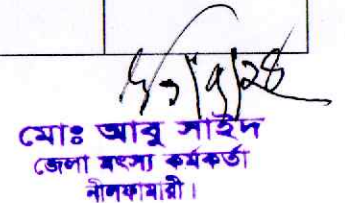 মোঃ আবু সাইদ
জেলা মৎস্য কর্মকর্তা
নীলফামারী।